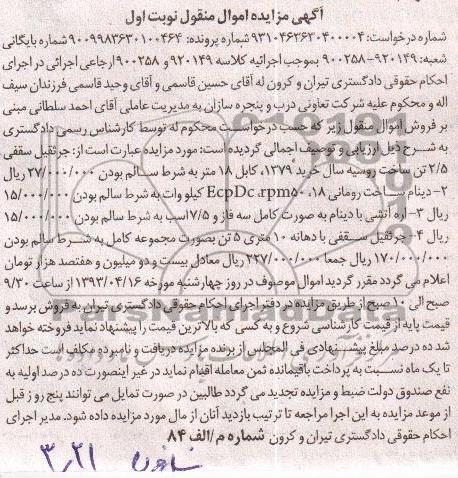 آگهی مزایده اموال منقول نوبت اول
شماره درخواست: ۹۳۱۰۴۶۲۶۳۰۴۰۰۰۰۴ شماره پرونده: ۹۰۰۹۹۸۳۶۳۰۱۰۰۴۶۴ شماره بایگانی
شعبه: ۹۲۰۱۴۹-۹۰۰۲۵۸ بموجب اجرائیه کلاسه ۹۲۰۱۴۹ و ۹۰۰۲۵۸ ارجاعی اجرائی در اجرای
احکام حقوقی دادگستری تیران و کرون له آقای حسین قاسمی و آقای وحید قاسمی فرزندان سیف
اله و محکوم علیه شرکت تعاونی درب و پنجره سازان به مدیریت عاملی آقای احمد سلطانی مبنی
بر فروش اموال منقول زیر که حسب درخواست محکوم له توسط کارشناس رسمی دادگستری
به شرح ذیل ارزیابی و توصیف اجمالی گردیده است: مورد مزایده عبارت است از: جرثقیل سقفی
۲/۵ تن ساخت روسیه سال خرید ۱۳۷۹، کابل ۱۸ متر به شرط سالم بودن ۲۷/۰۰۰/۰۰۰ ریال
۲- دینام ساخت رومانی ۱۸، EcpDc.rpm۵۰ کیلو وات به شرط سالم بودن ۱۵/۰۰۰/۰۰۰
ریال ۳- اره آتشی با دینام به صورت کامل سه فاز و ۷/۵ اسب به شرط سالم بودن ۱۵/۰۰۰/۰۰۰
ریال ۴- جرثقیل سقفی با دهانه ۱۰ متری ۵ تن بصورت مجموعه کامل به شرط سالم بودن
۱۷۰/۰۰۰/۰۰۰ ریال جمعا ۲۲۷/۰۰۰/۰۰۰ ریال معادل بیست و دو میلیون و هفتصد هزار تومان
اعلام می گردد مقرر گردید اموال موصوف در روز چهارشنبه مورخه ۱۳۹۳/۰۴/۱۶ از ساعت ۹/۳۰
صبح الی ۱۰ صبح از طریق مزایده در دفتر اجرای احکام حقوقی دادگستری تیران به فروش برسد و
قیمت پایه از قیمت کارشناسی شروع و به کسی که بالاترین قیمت را پیشنهاد نماید فروخته خواهد
شد ده درصد مبلغ پیشنهادی فی المجلس از برنده مزایده دریافت و نامبرده مکلف است حداکثر
تا یک ماه نسبت به پرداخت باقیمانده ثمن معامله اقدام نماید در غیر اینصورت ده درصد اولیه به
نفع صندوق دولت ضبط و مزایده تجدید می گردد طالبین در صورت تمایل می توانند پنج روز قبل
از موعد مزایده به این اجرا مراجعه تا ترتیب بازدید آنان از مال مورد مزایده داده شود. مدیر اجرای
احکام حقوقی دادگستری تیران و کرون شماره م/الف ۸۴
۳,۲۱